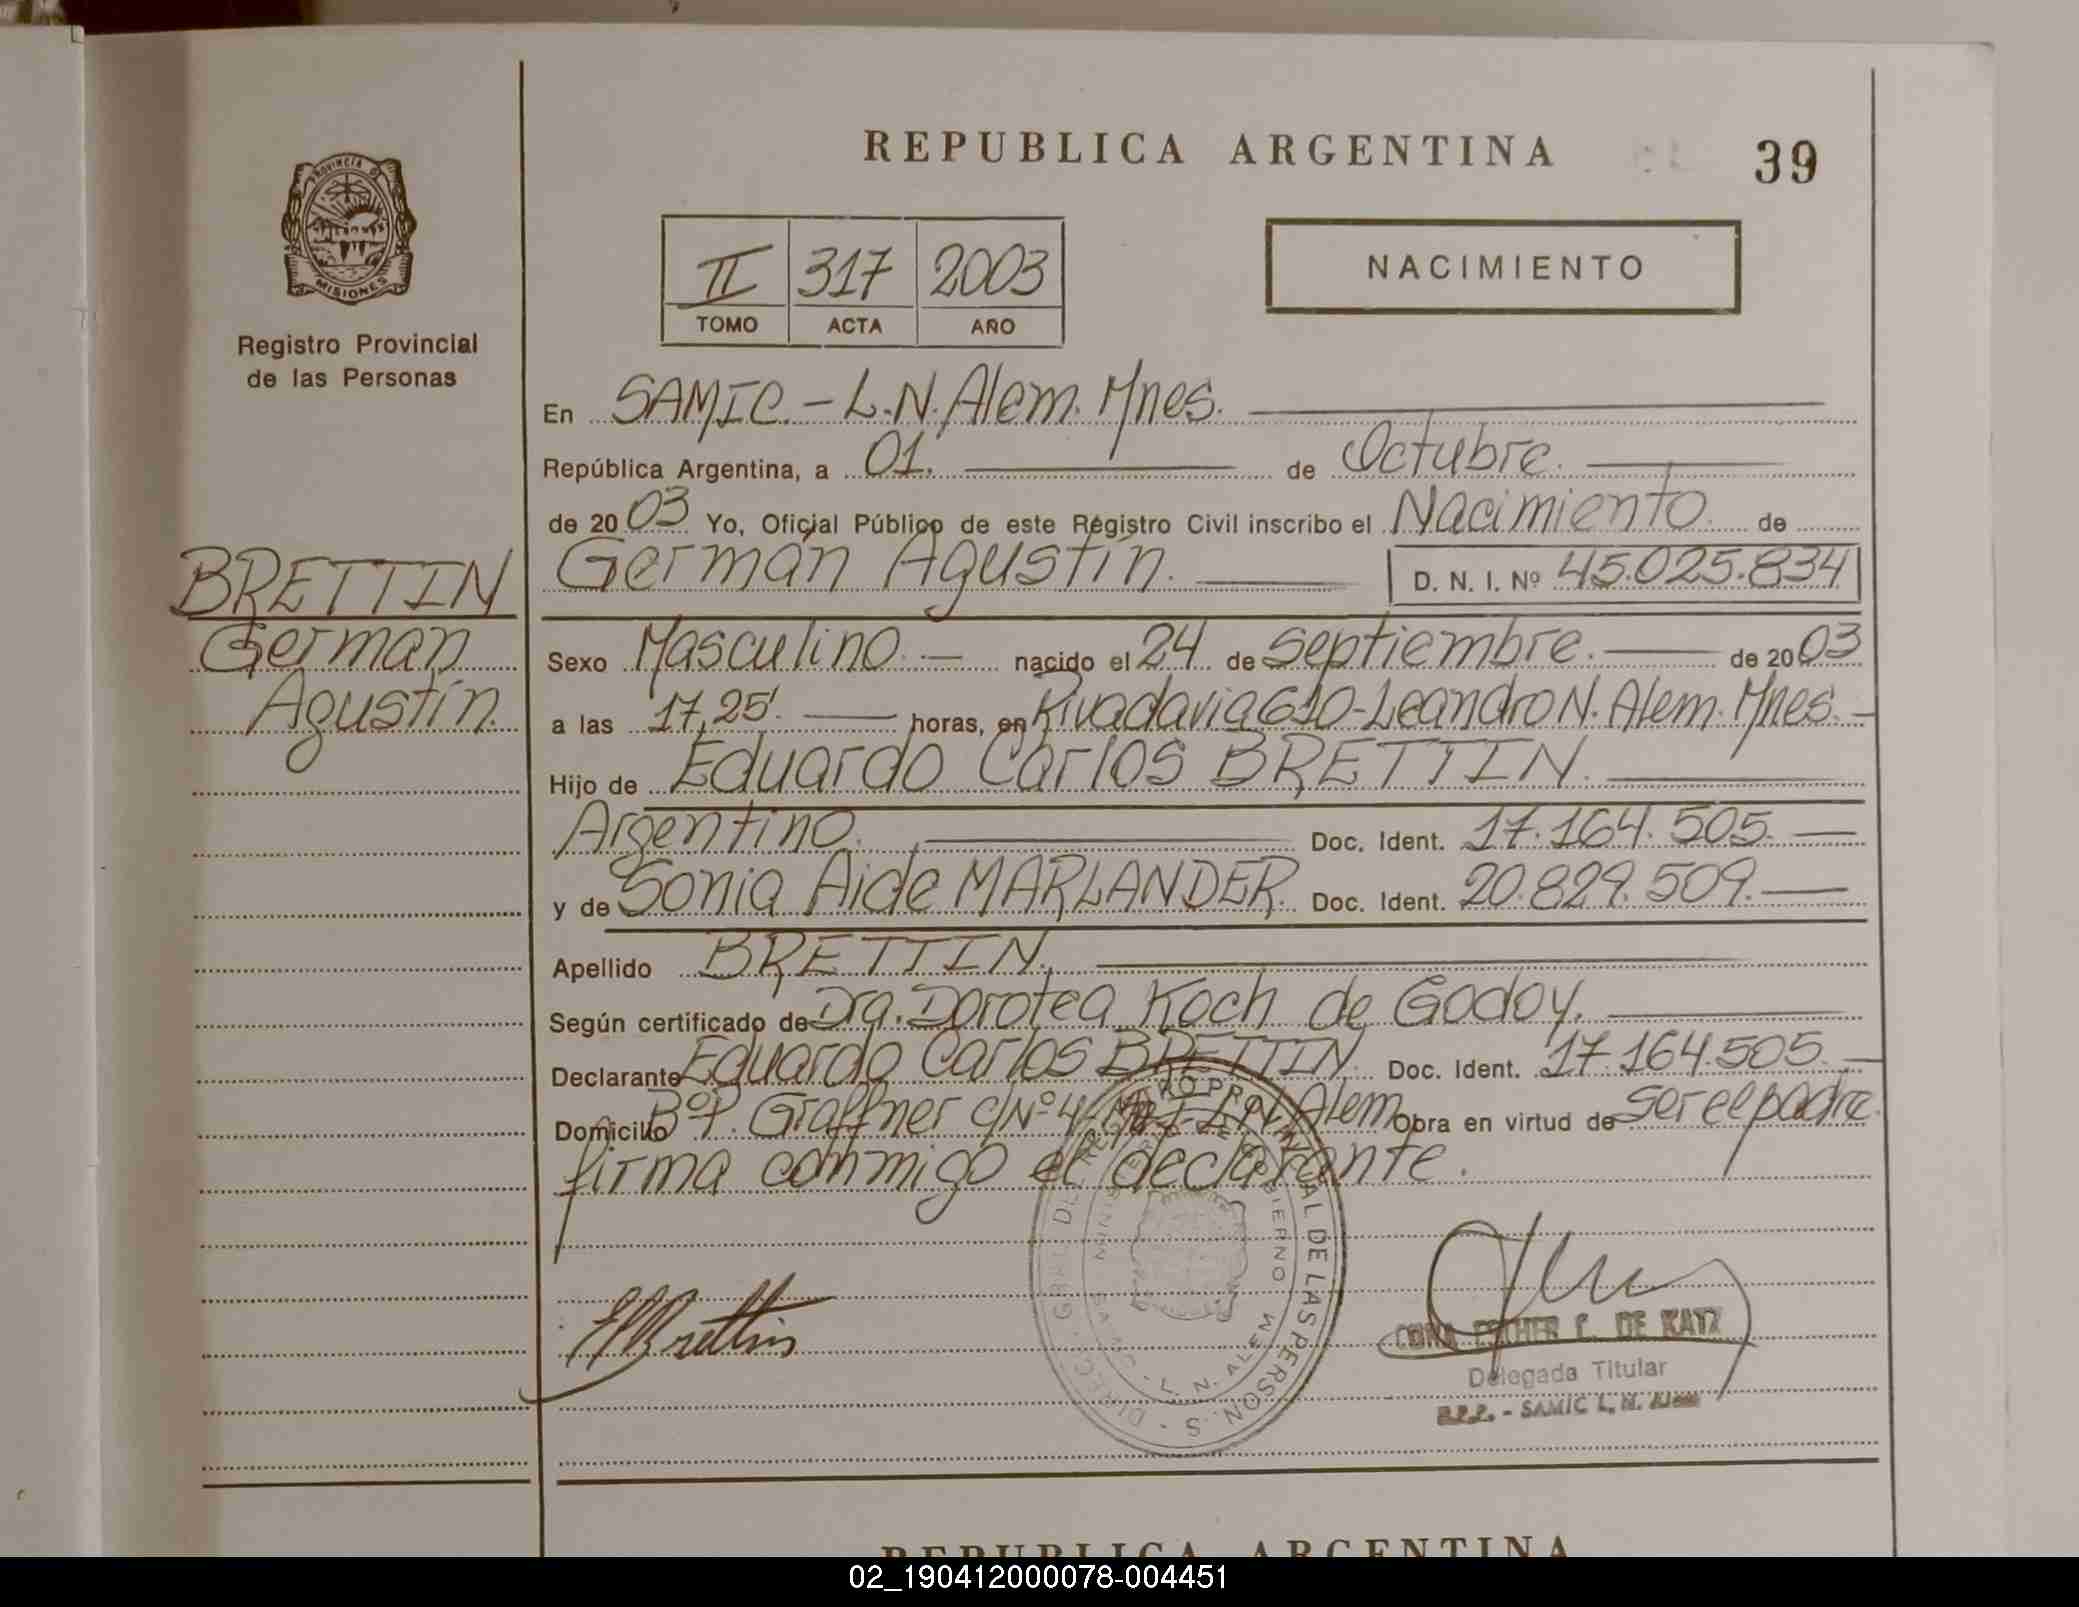 REPUBLICA ARGENTINA
39
PROVINCIA DE
MISIONES
Registro Provincial
de las Personas
II 317 2003
TOMO ACTA AÑO
NACIMIENTO
En SAMIC.- L.N. Alem. Mnes.
República Argentina, a 01. de Octubre.
de 2003 Yo, Oficial Público de este Registro Civil inscribo el Nacimiento de
Germán Agustín. D. N. I. Nº 45.025.834
BRETTIN
Germán
Agustín.
Sexo Masculino.- nacido el 24 de Septiembre. de 2003
a las 17,25'. horas, en Rivadavia 610-Leandro N. Alem. Mnes.-
Hijo de Eduardo Carlos BRETTIN.
Argentino. Doc. Ident. 17.164.505.
y de Sonia Aide MARLANDER. Doc. Ident. 20.829.509.
Apellido BRETTIN.
Según certificado de Dra. Dorotea Koch de Godoy.
Declarante Eduardo Carlos BRETTIN. Doc. Ident. 17.164.505.-
Domicilio Bº P. Graffner c/Nº 4 L.N. Alem Obra en virtud de ser el padre
firma conmigo el declarante.
Brettin
ESTHER C. DE KATZ
Delegada Titular
R.P.P. - SAMIC L. N. Alem
DIREC. GRAL. DEL REGISTRO PROVINCIAL DE LAS PERSONAS
MINISTERIO DE GOBIERNO
SAMIC - L. N. ALEM
REPUBLICA ARGENTINA
02_190412000078-004451